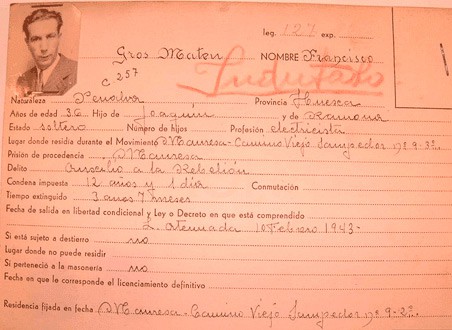 leg. 127 exp.
Gros Mateu NOMBRE Francisco
C 257
Indultado
Naturaleza Penalva Provincia Huesca
Años de edad 36 Hijo de Joaquín y de Ramona
Estado soltero Número de hijos Profesión electricista
Lugar donde residía durante el Movimiento Manresa-Camino Viejo Sampedor nº 9-3º
Prisión de procedencia Manresa
Delito Auxilio a la Rebelión
Condena impuesta 12 años y 1 día Conmutación
Tiempo extinguido 3 años 7 meses
Fecha de salida en libertad condicional y Ley o Decreto en que está comprendido
L. Atenuada 10 Febrero 1943-
Si está sujeto a destierro no
Lugar donde no puede residir
Si perteneció a la masonería no
Fecha en que le corresponde el licenciamiento definitivo
Residencia fijada en fecha Manresa-Camino Viejo Sampedor nº 9-2º